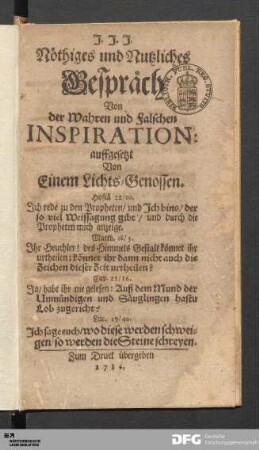 J. J. J.
Nöthiges und Nutzliches
Gespräch
Von
der Wahren und Falschen
INSPIRATION:
auffgesetzt
Von
Einem Lichts-Genossen.
Hoseä 12/10.
Ich rede zu den Propheten/ und Ich bins/ der
so viel Weissagung gibt/ und durch die
Propheten mich anzeige.
Matth. 16/3.
Ihr Heuchler! des Himmels Gestalt könnet ihr
urtheilen; könnet ihr dann nicht auch die
Zeichen dieser Zeit urtheilen?
21/16.
Ja/ habt ihr nie gelesen: Auß dem Mund der
Unmündigen und Säuglingen hastu
Lob zugericht?
Luc. 19/40.
Ich sage euch/ wo diese werden schwei-
gen so werden die Steine schreyen.
Zum Druck übergeben
1714.
DFG
Deutsche
Forschungsgemeinschaft